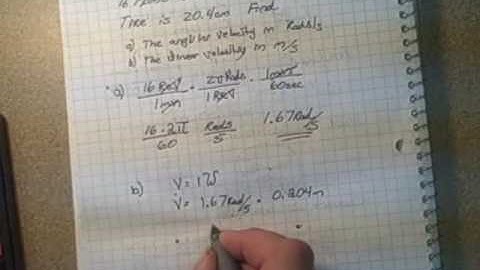 Tree is 20.4cm Find
a) The angular velocity in Rads/s
b) The linear velocity in m/s
a) 16 Rev / 1 min · 2π Rads / 1 Rev · 1 min / 60 sec
16 · 2π / 60 Rads / s 1.67 Rad/s
b) V = r ω
V = 1.67 Rad/s · 0.204m